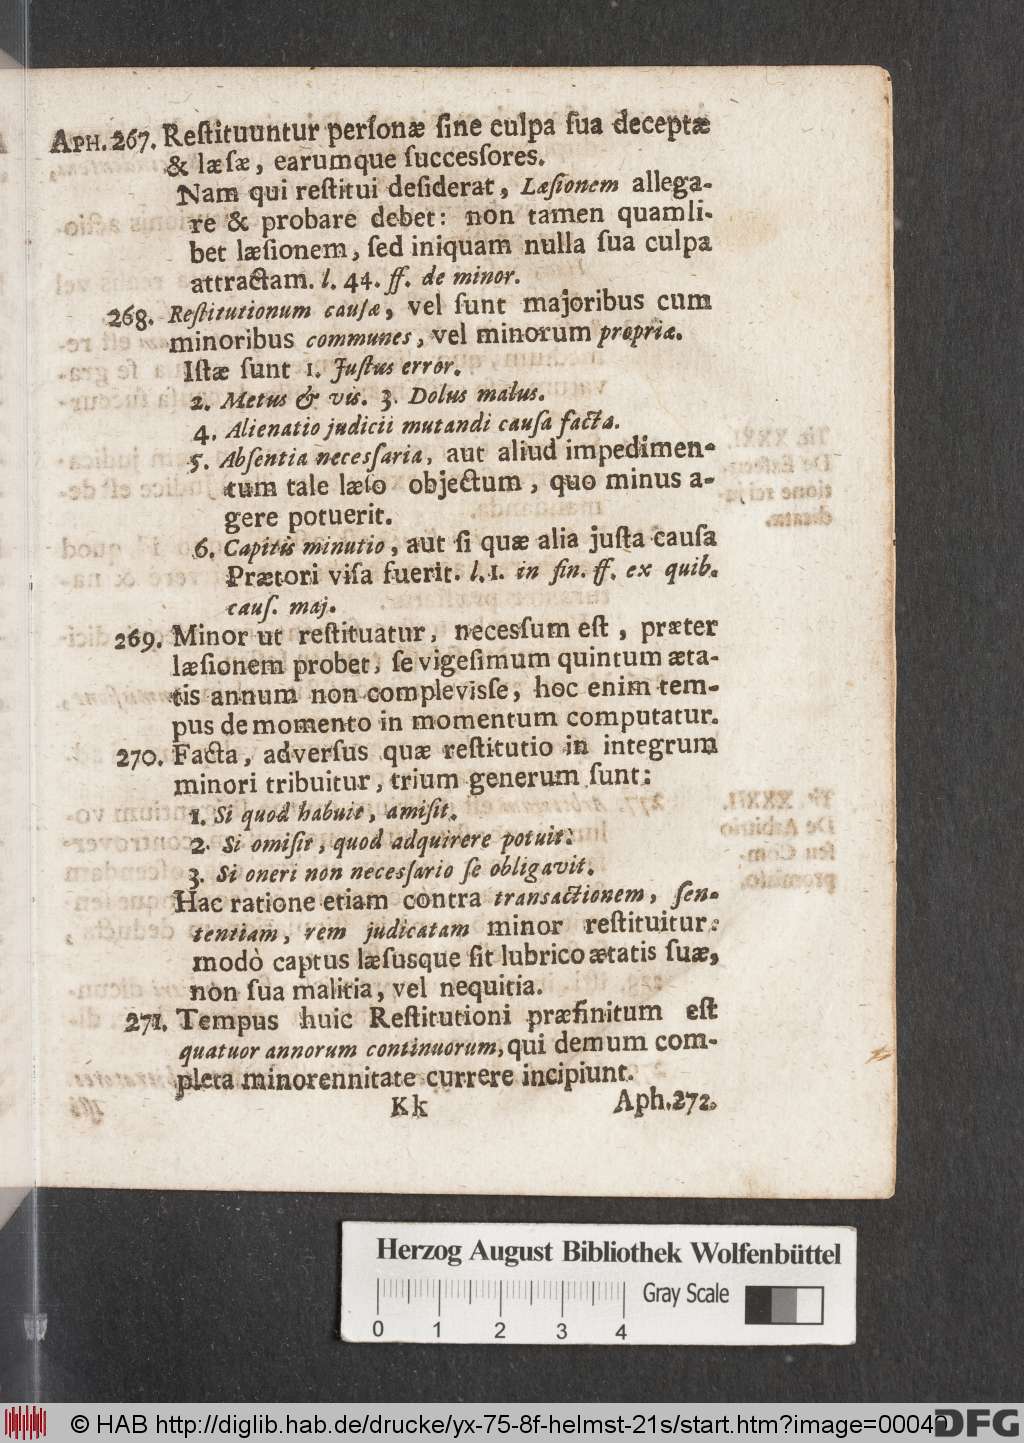 APH. 267. Reſtituuntur perſonæ ſine culpa ſua deceptæ
& læſæ, earumque ſucceſſores.
Nam qui reſtitui deſiderat, Læſionem allega-
re & probare debet: non tamen quamli-
bet læſionem, ſed iniquam nulla ſua culpa
attractam. l. 44. ff. de minor.
268. Reſtitutionum cauſæ, vel ſunt majoribus cum
minoribus communes, vel minorum propriæ.
Iſtæ ſunt 1. Juſtus error.
2. Metus & vis. 3. Dolus malus.
4. Alienatio judicii mutandi cauſa facta.
5. Abſentia neceſſaria, aut aliud impedimen-
tum tale læſo objectum, quo minus a-
gere potuerit.
6. Capitis minutio, aut ſi quæ alia juſta cauſa
Prætori viſa fuerit. l. 1. in fin. ff. ex quib.
cauſ. maj.
269. Minor ut reſtituatur, neceſſum eſt, præter
læſionem probet, ſe vigeſimum quintum æta-
tis annum non compleviſſe, hoc enim tem-
pus de momento in momentum computatur.
270. Facta, adverſus quæ reſtitutio in integrum
minori tribuitur, trium generum ſunt:
1. Si quod habuit, amiſit.
2. Si omiſit, quod adquirere potuit:
3. Si oneri non neceſſario ſe obligavit.
Hac ratione etiam contra transactionem, ſen-
tentiam, rem judicatam minor reſtituitur:
modò captus læſusque ſit lubrico ætatis ſuæ,
non ſua malitia, vel nequitia.
271. Tempus huic Reſtitutioni præfinitum eſt
quatuor annorum continuorum, qui demum com-
pleta minorennitate currere incipiunt.
Kk Aph. 272.
Herzog August Bibliothek Wolfenbüttel
Gray Scale
0 1 2 3 4
© HAB http://diglib.hab.de/drucke/yx-75-8f-helmst-21s/start.htm?image=00049
DFG